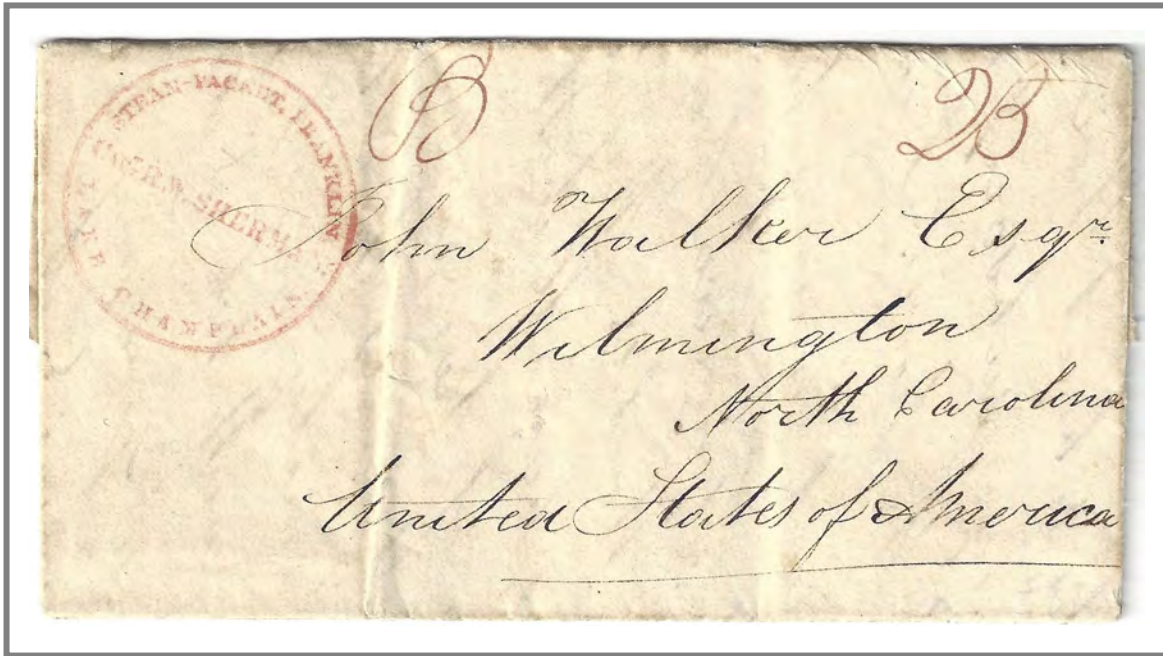 STEAM-PACKET, FRANKLIN
R.W. SHERMAN
CHAMPLAIN.
25
John Walker Esqr.
Wilmington
North Carolina
United States of America